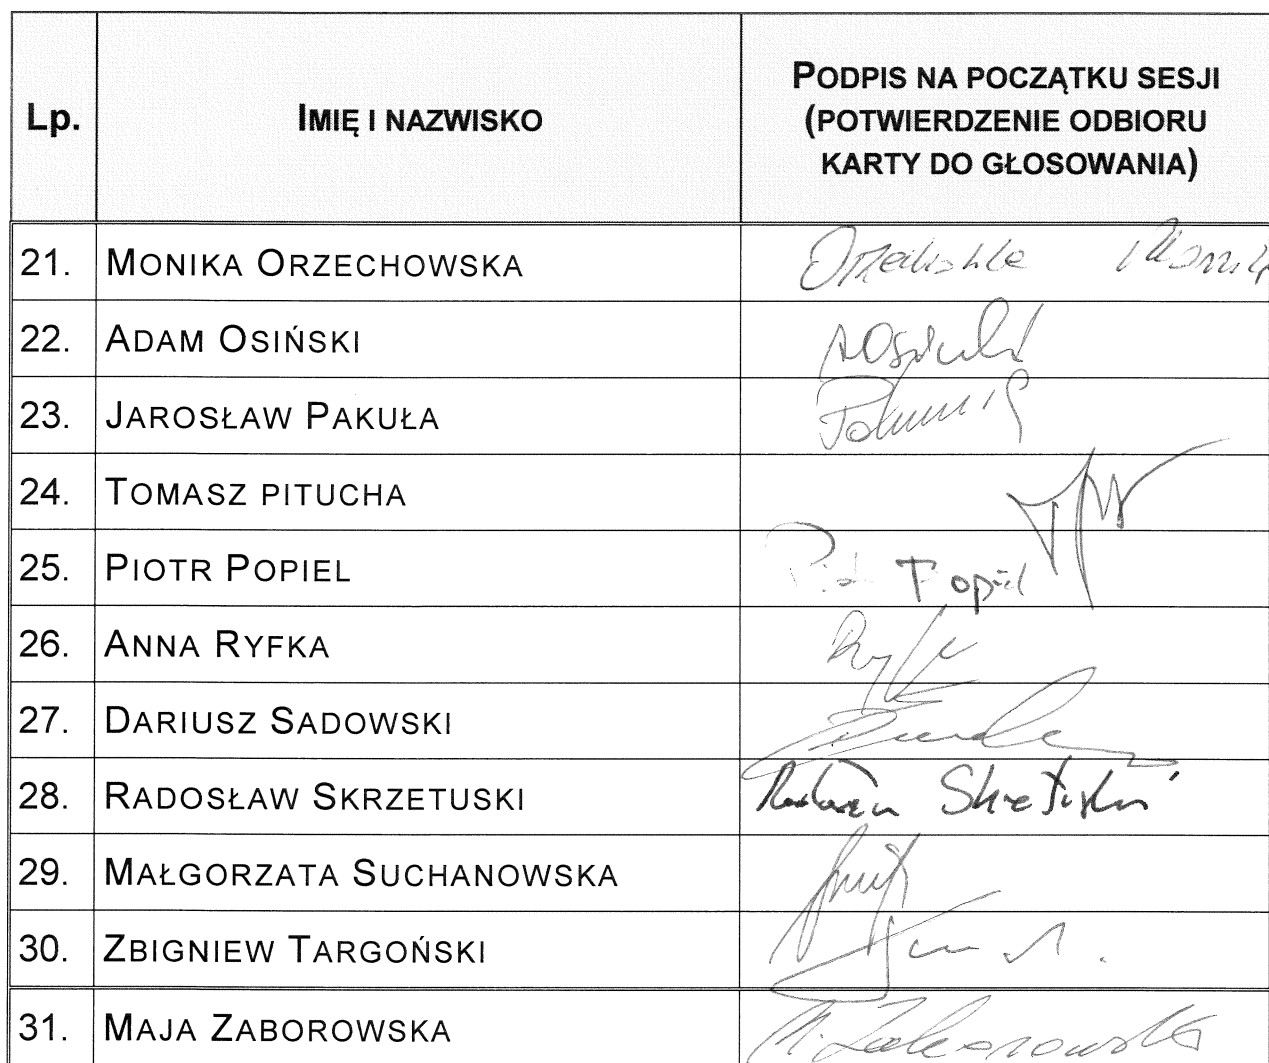 Lp.
IMIĘ I NAZWISKO
PODPIS NA POCZĄTKU SESJI
(POTWIERDZENIE ODBIORU
KARTY DO GŁOSOWANIA)
21. MONIKA ORZECHOWSKA
22. ADAM OSIŃSKI
23. JAROSŁAW PAKUŁA
24. TOMASZ PITUCHA
25. PIOTR POPIEL Popiel
26. ANNA RYFKA
27. DARIUSZ SADOWSKI
28. RADOSŁAW SKRZETUSKI
29. MAŁGORZATA SUCHANOWSKA
30. ZBIGNIEW TARGOŃSKI
31. MAJA ZABOROWSKA M. Zaborowska